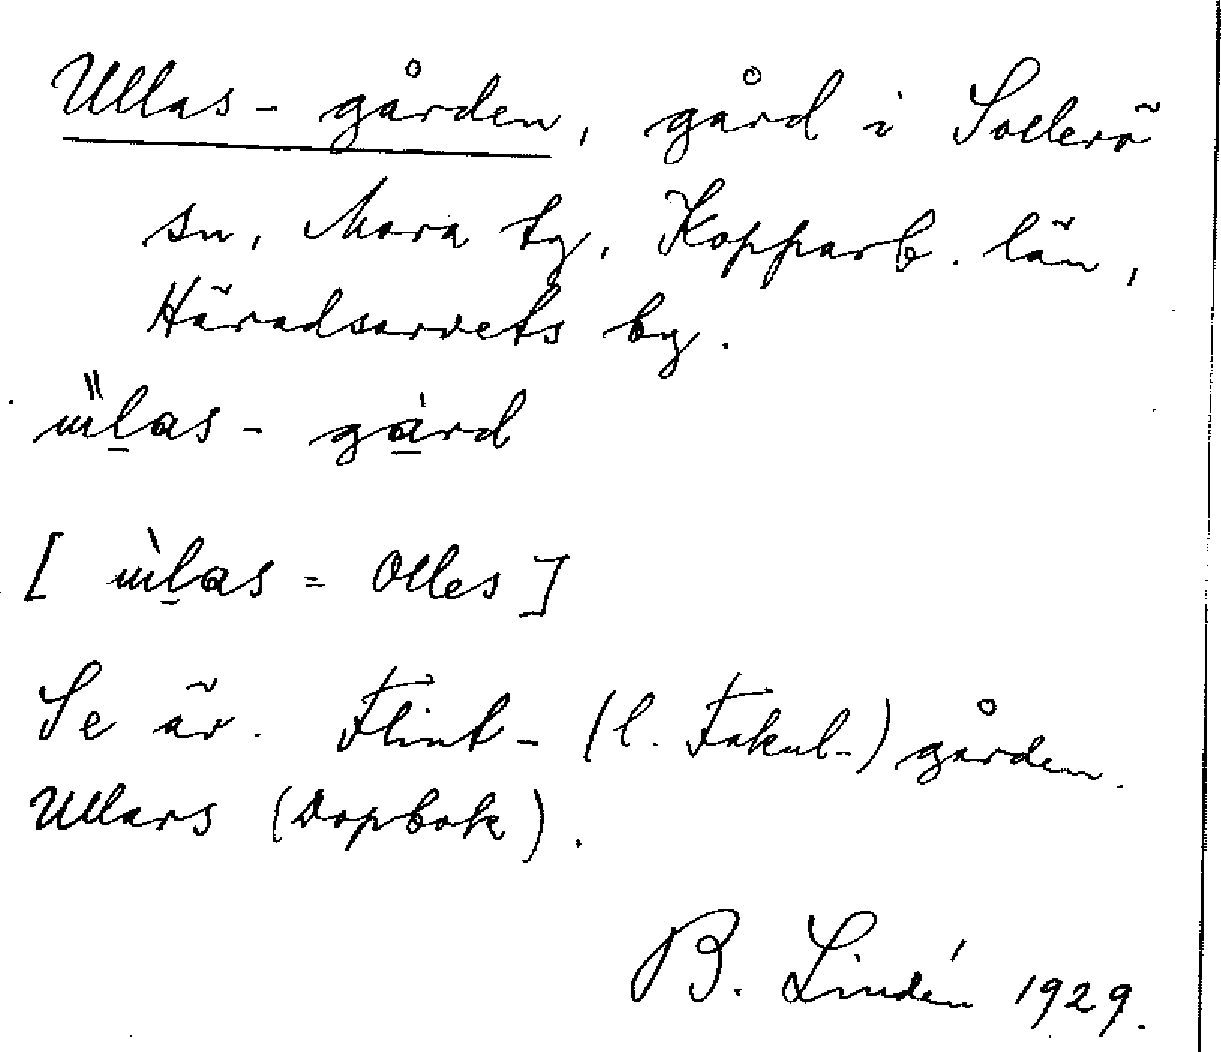 Ullas-gården, gård i Sollerö
sn, Mora tg, Kopparb. län,
Häradsarvets by.
ùlas-gård
[ ùlas = Olles ]
Se äv. Flint- (l. Fakul-) gården.
Ullars (Dopbok).
B. Lindén 1929.